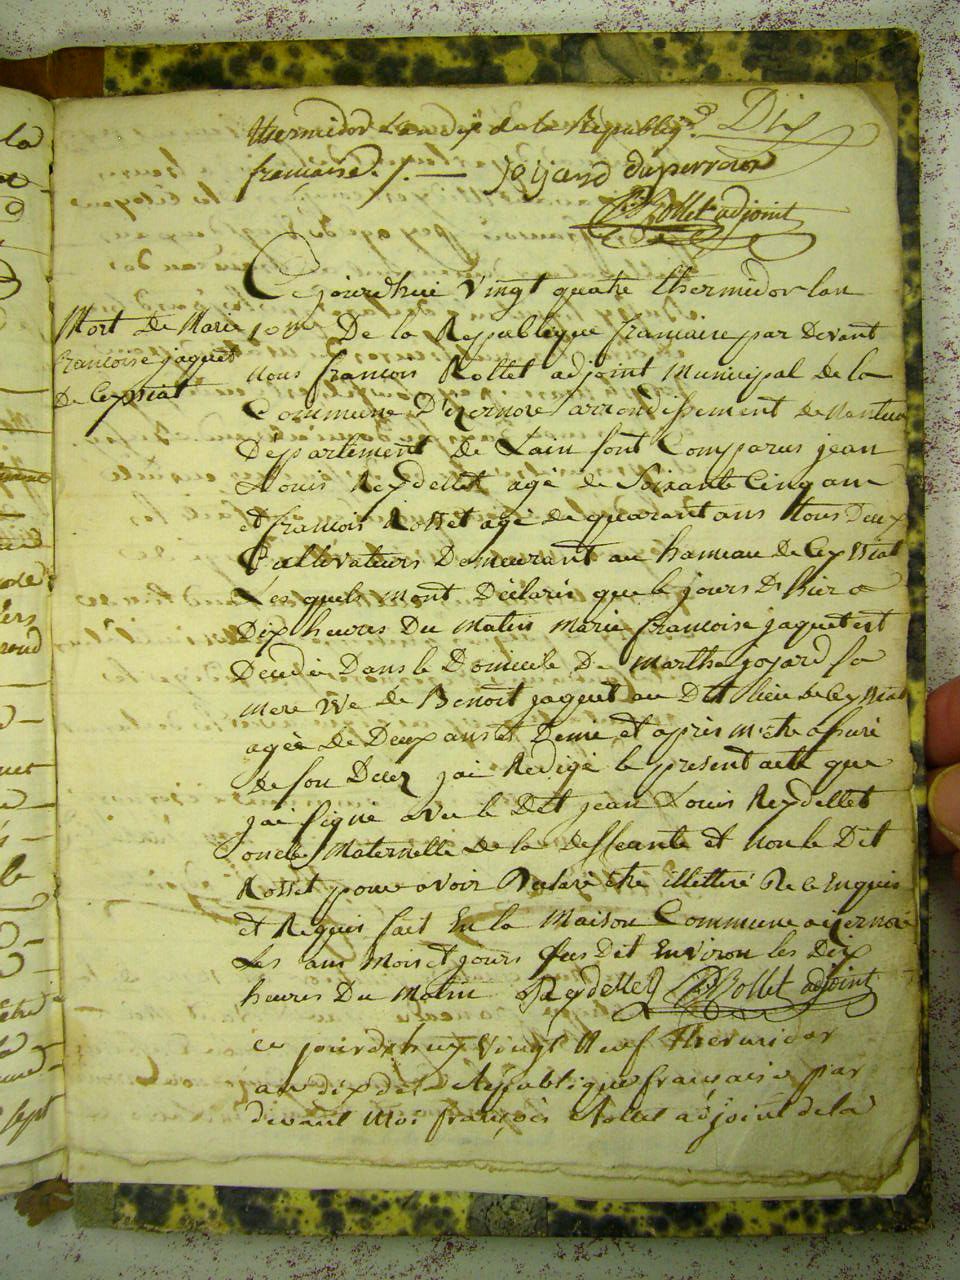 thermidor Lan dix de la Republiq.e Dix
francaise ./. — Jojard duperroux
Rollet adjoint
Ce jourdhui Vingt quatre thermidor lan
10me De la Republique francaise par devant
Mort de Marie
francoise jaquet
de Ceyssiat
nous francois Rollet adjoint municipal de la
Commune D'izernore arrondissement de Nantua
Département de Lain sont Comparus jean
Louis Reydellet agé de Soixante Cinq ans
et francois Rosset agé de quarant ans tous Deux
Cultivateurs Demeurant au hameau de Ceyssiat
Lesquels mont Déclaré que le jours D'hier a
Dix heures Du Matin Marie francoise jaquet est
Décédée Dans le Domicile De Marthe jojard sa
mere Vve de Benoit jaquet au Dit lieu de Ceyssiat
agée de Deux ans et Demi et après m'etre assuré
de son Décez jai Rédigé le présent acte que
jai signé avec le Dit jean Louis Reydellet
oncle Maternelle de la deffeante et non le Dit
Rosset pour avoir Déclaré etre illetteré De ce Enquis
et Requis fait En la Maison Commune a izernore
Les ans mois et jours sus Dit Environ les Dix
heures Du matin Reydellet Rollet adjoint
ce jourdhuy vingt Neuf thermidor
an dix de la République francaise par
devant Moi françois Rollet adjoint de la